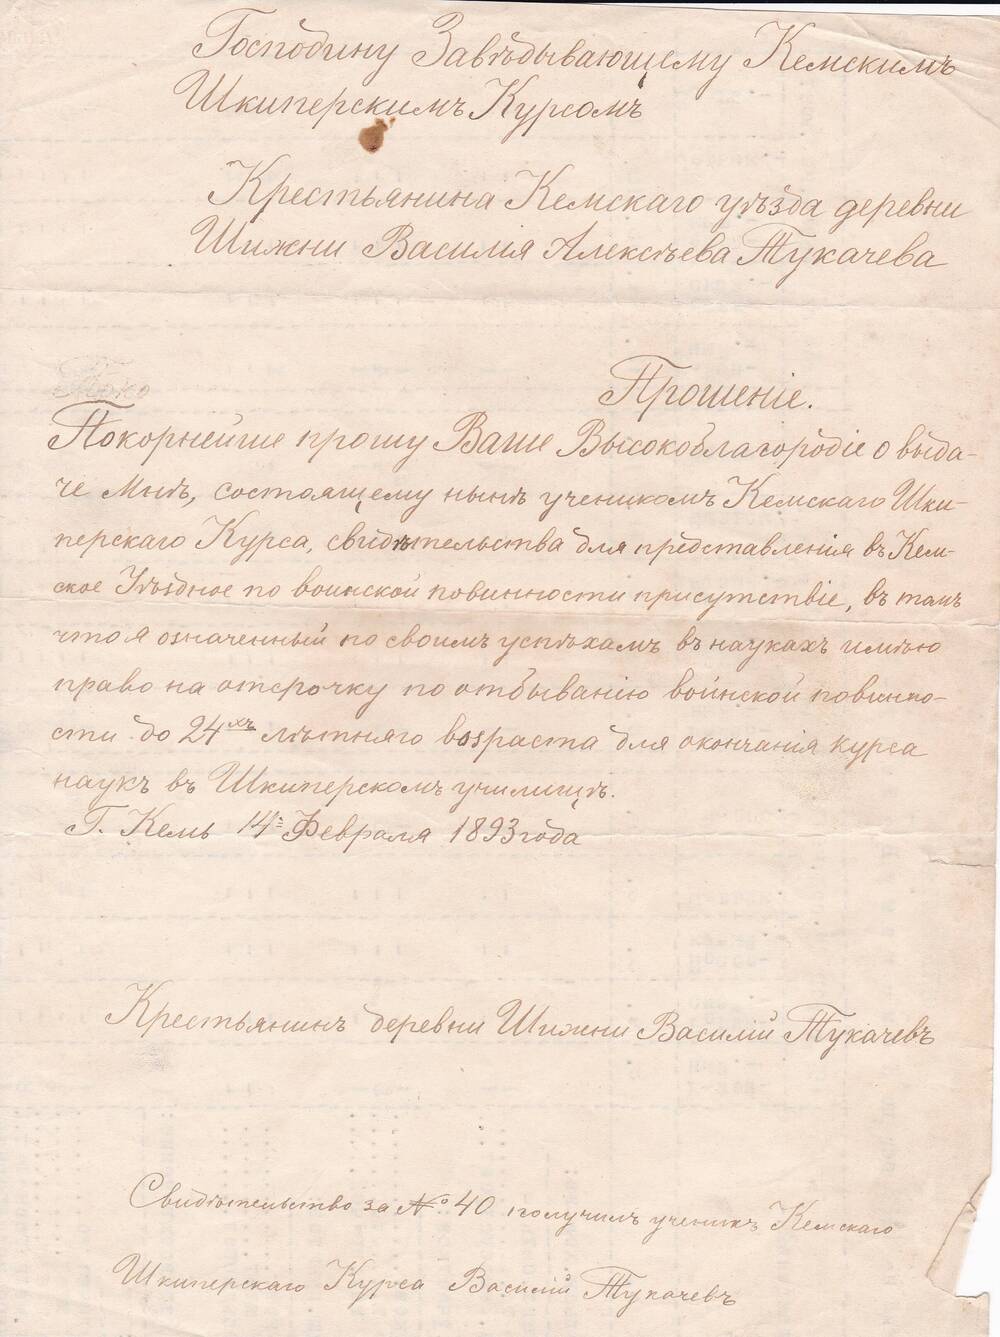 Господину Завѣдывающему Кемскимъ
Шкиперскимъ Курсомъ
Крестьянина Кемскаго уѣзда деревни
Шижни Василія Алексѣева Тукачева
Прошеніе.
Покорнейше прошу Ваше Высокоблагородіе о выда-
че Мнѣ, состоящему нынѣ ученикомъ Кемскаго Шки-
перскаго Курса, свидѣтельства для представленія въ Кем-
ское Уѣздное по воинской повинности присутствіе, въ томъ
что я означенный по своимъ успѣхамъ въ наукахъ имѣю
право на отсрочку по отбыванію воинской повинно-
сти до 24хъ лѣтняго возраста для окончанія курса
наукъ въ Шкиперскомъ училищѣ.
Г. Кемь 14 Февраля 1893 года
Крестьянинъ деревни Шижни Василій Тукачевъ
Свидѣтельство за № 40 получилъ ученикъ Кемскаго
Шкиперскаго Курса Василій Тукачевъ